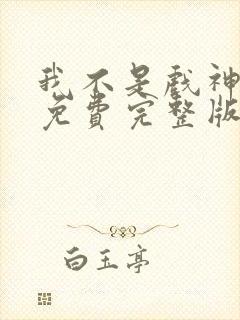 我不是戏神
免费完整版
白玉亭